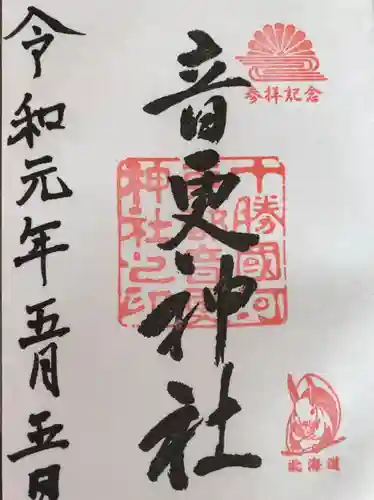 参拝記念
音更神社
十勝國河
東郡音更
神社之印
北海道
令和元年五月五日